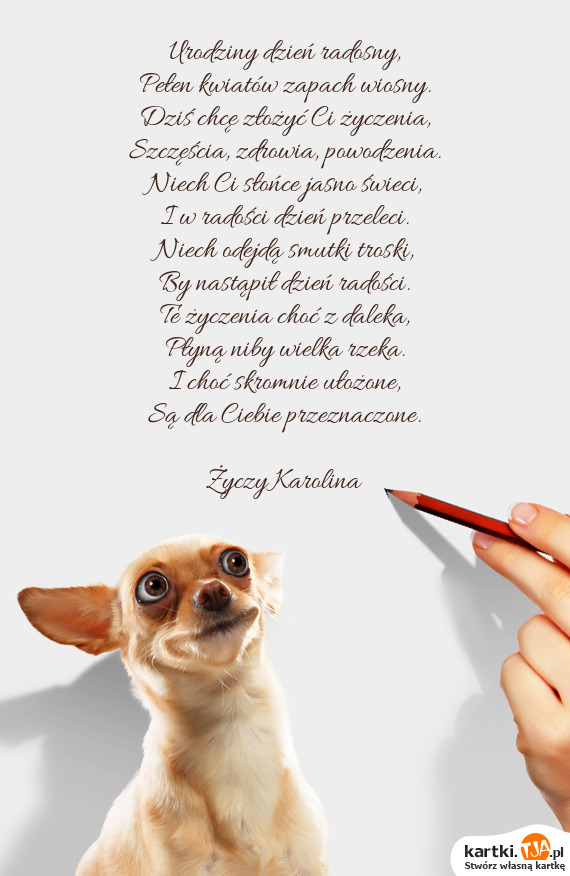 Urodziny dzień radosny,
Pełen kwiatów zapach wiosny.
Dziś chcę złożyć Ci życzenia,
Szczęścia, zdrowia, powodzenia.
Niech Ci słońce jasno świeci,
I w radości dzień przeleci.
Niech odejdą smutki troski,
By nastąpił dzień radości.
Te życzenia choć z daleka,
Płyną niby wielka rzeka.
I choć skromnie ułożone,
Są dla Ciebie przeznaczone.
Życzy Karolina
kartki.TJA.pl
Stwórz własną kartkę